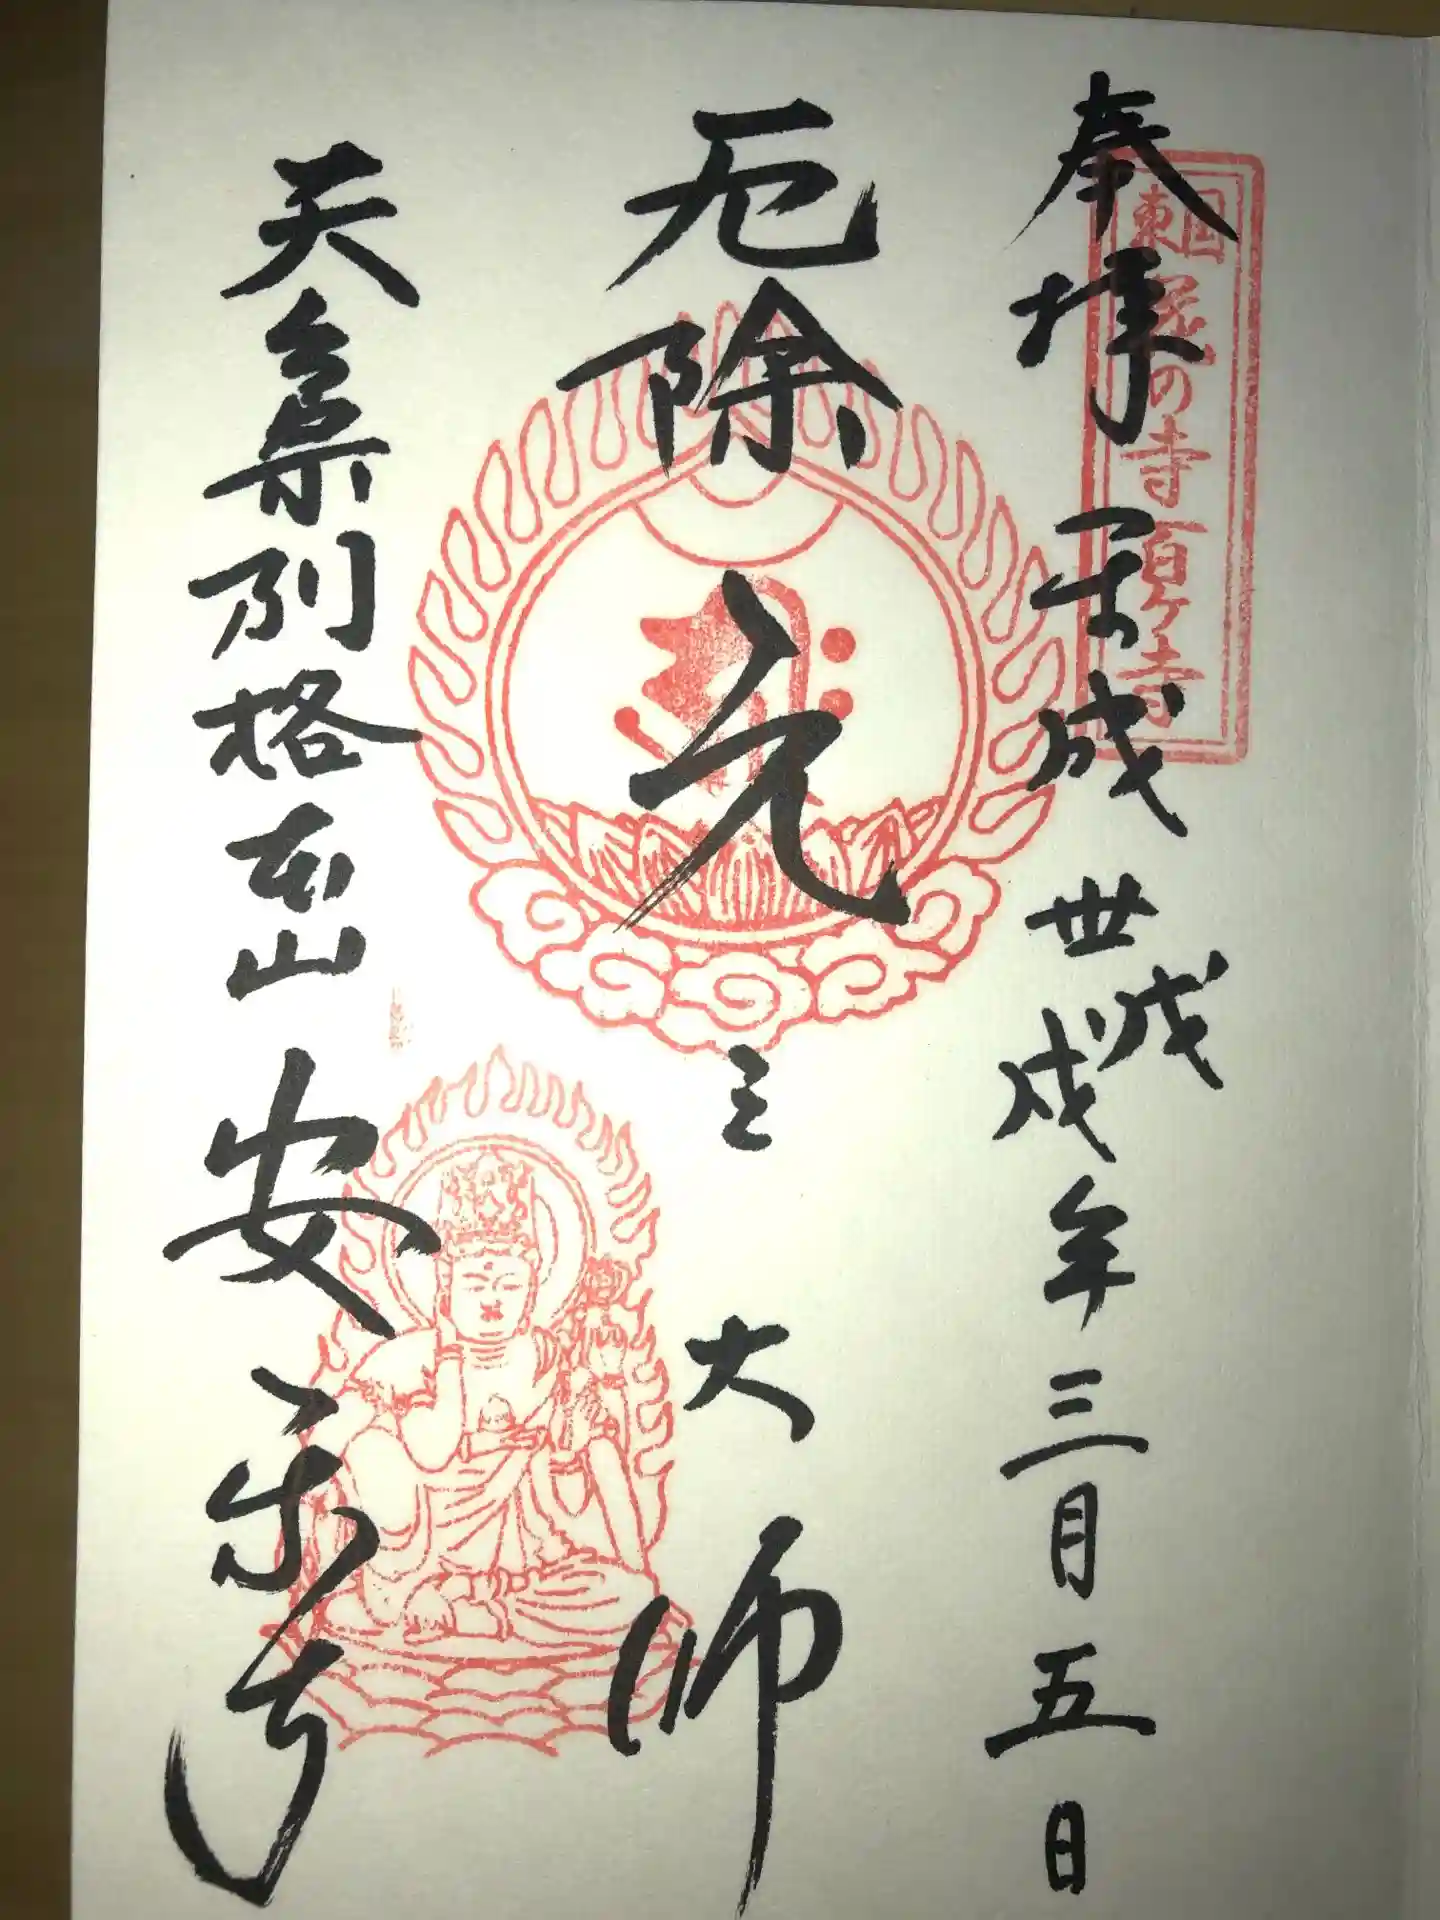 東国花の寺百ヶ寺
奉拝 平成卅戊戌年三月五日
厄除 元三大師
天台宗別格本山 安楽寺